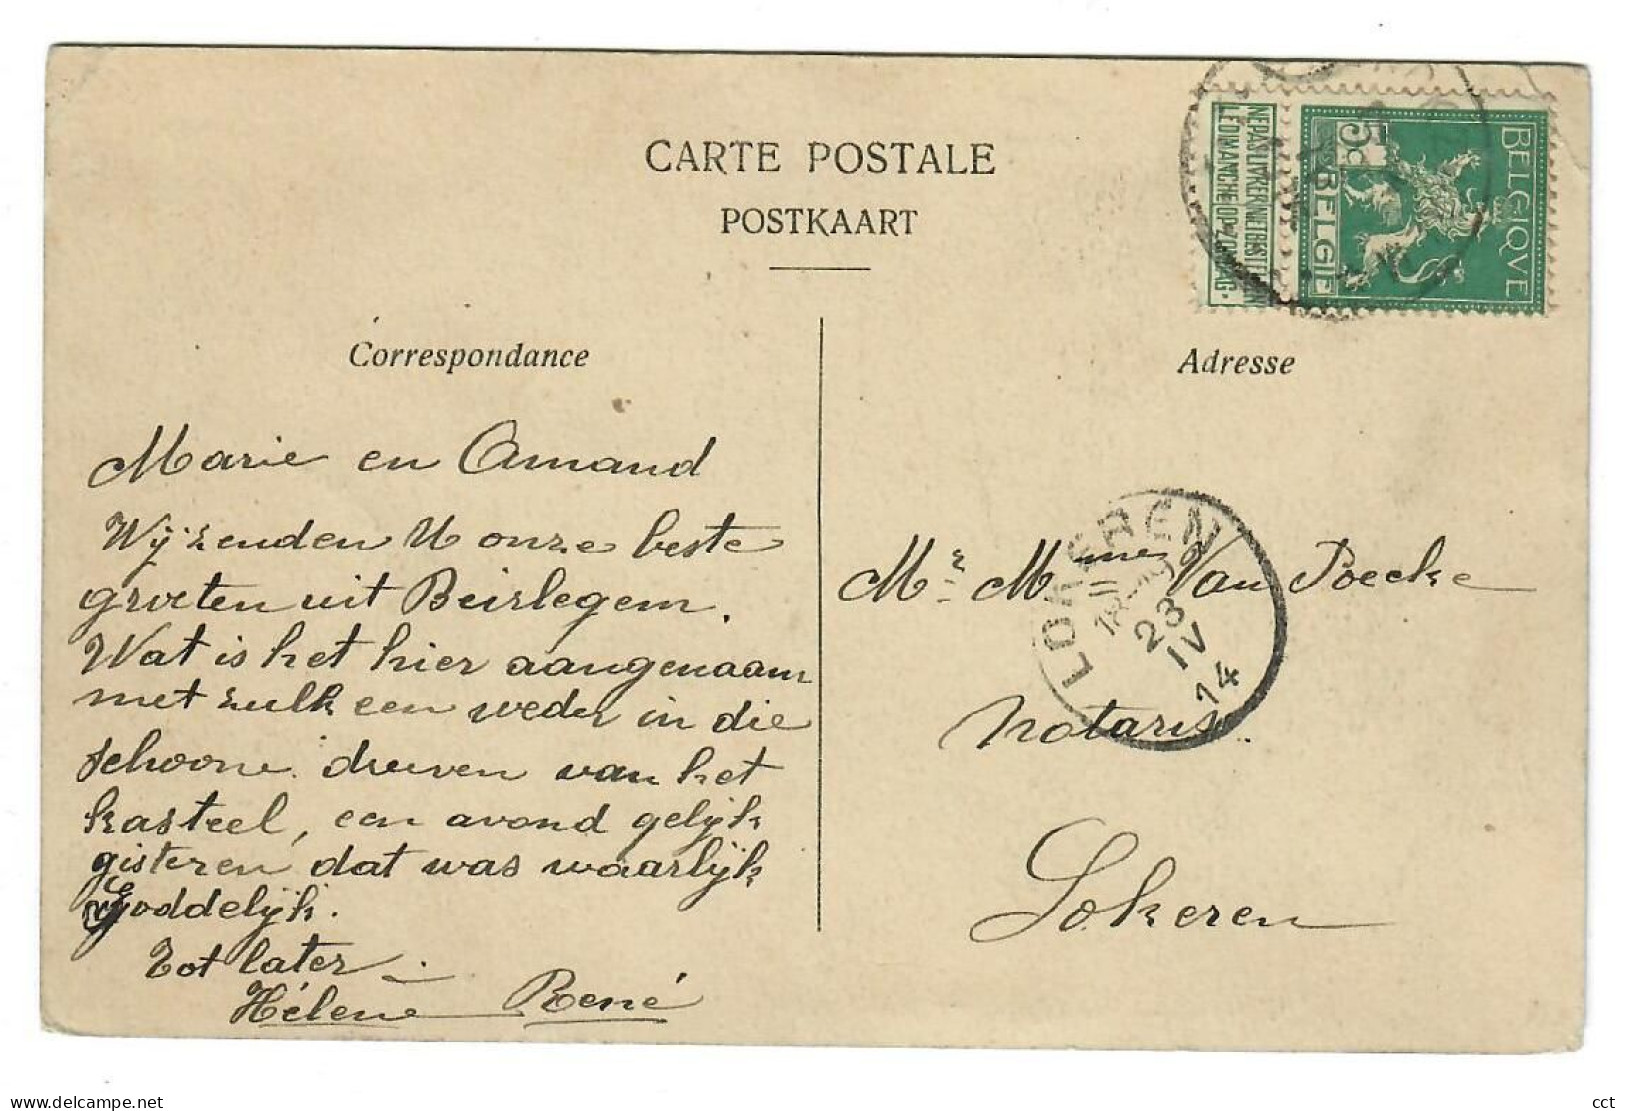 CARTE POSTALE
POSTKAART
BELGIQVE
BELGIË
5c
NE PAS LIVRER
LE DIMANCHE
NIET BESTELLEN
OP ZONDAG.
Correspondance
Marie en Amand
Wij zenden U onze beste
groeten uit Beirlegem.
Wat is het hier aangenaam
met zulk een weder in die
schoone dreeven van het
kasteel, een avond gelijk
gisteren, dat was waarlijk
Goddelijk.
Tot later.
Hélène René
Adresse
Mr. Mme Van Poecke
Notaris.
Lokeren
LOKEREN
23
IV
14
delcampe.net
cct